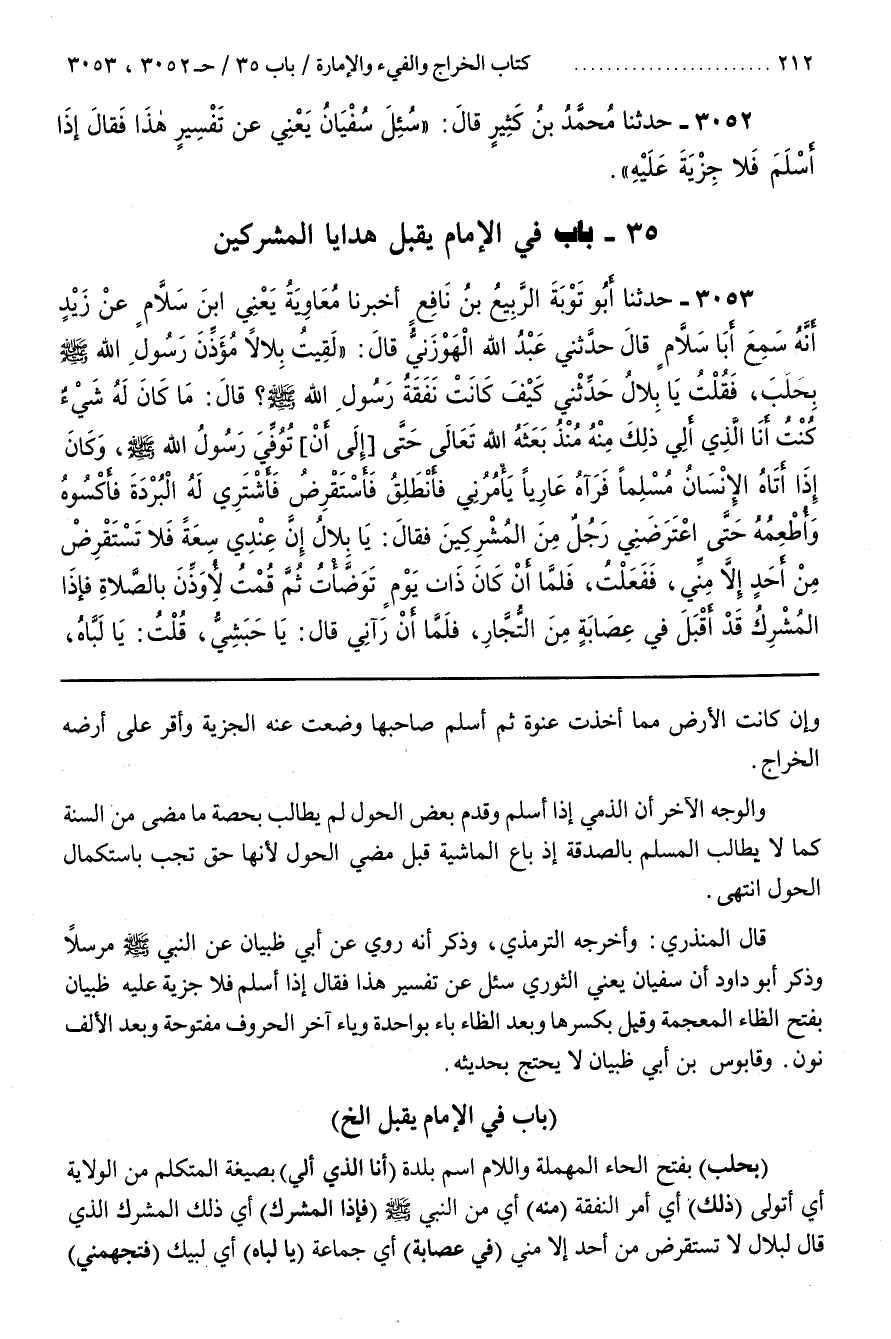 ٢١٢ ........................ كتاب الخراج والفيء والإمارة / باب ٣٥ / حـ ٣٠٥٢ ، ٣٠٥٣
٣٠٥٢ ـ حدثنا مُحمَّدُ بنُ كَثِيرٍ قالَ: «سُئِلَ سُفْيَانُ يَعْنِي عن تَفْسِيرِ هٰذَا فَقالَ إذَا
أَسْلَمَ فَلا جِزْيَةَ عَلَيْهِ».
٣٥ ـ باب في الإمام يقبل هدايا المشركين
٣٠٥٣ ـ حدثنا أَبُو تَوْبَةَ الرَّبِيعُ بنُ نَافِعٍ أخبرنا مُعَاوِيَةُ يَعْنِي ابنَ سَلَّامٍ عنْ زَيْدٍ
أَنَّهُ سَمِعَ أَبَا سَلَّامٍ قالَ حدَّثني عَبْدُ الله الْهَوْزَنيُّ قالَ: «لَقِيتُ بِلالًا مُؤَذِّنَ رَسُولِ الله ﷺ
بِحَلَبَ، فَقُلْتُ يَا بِلالُ حَدِّثْنِي كَيْفَ كَانَتْ نَفَقَةُ رَسُولِ الله ﷺ؟ قالَ: مَا كَانَ لَهُ شَيْءٌ
كُنْتُ أنَا الَّذِي أَلِي ذلِكَ مِنْهُ مُنْذُ بَعَثَهُ الله تَعَالَى حَتَّى [إلَى أنْ] تُوُفِّيَ رَسُولُ الله ﷺ، وَكَانَ
إذَا أتَاهُ الإنْسَانُ مُسْلِماً فَرَآهُ عَارِياً يَأْمُرُنِي فأَنْطَلِقُ فَأَسْتَقْرِضُ فَأَشْتَرِي لَهُ الْبُرْدَةَ فأَكْسُوهُ
وَأُطْعِمُهُ حَتَّى اعْتَرَضَنِي رَجُلٌ مِنَ المُشْرِكِينَ فقالَ: يَا بِلالُ إنَّ عِنْدِي سِعَةً فَلا تَسْتَقْرِضْ
مِنْ أَحَدٍ إلَّا مِنِّي، فَفَعَلْتُ، فَلمَّا أنْ كَانَ ذَاتَ يَوْمٍ تَوَضَّأْتُ ثُمَّ قُمْتُ لِأُوَذِّنَ بالصَّلاةِ فإذَا
المُشْرِكُ قَدْ أَقْبَلَ في عِصَابَةٍ مِنَ التُّجَّارِ، فلَمَّا أنْ رَآنِي قال: يَا حَبَشِيُّ، قُلْتُ: يَا لَبَّاهُ،
وإن كانت الأرض مما أخذت عنوة ثم أسلم صاحبها وضعت عنه الجزية وأقر على أرضه
الخراج.
والوجه الآخر أن الذمي إذا أسلم وقدم بعض الحول لم يطالب بحصة ما مضى من السنة
كما لا يطالب المسلم بالصدقة إذ باع الماشية قبل مضي الحول لأنها حق تجب باستكمال
الحول انتهى.
قال المنذري: وأخرجه الترمذي، وذكر أنه روي عن أبي ظبيان عن النبي ﷺ مرسلاً
وذكر أبو داود أن سفيان يعني الثوري سئل عن تفسير هذا فقال إذا أسلم فلا جزية عليه ظبيان
بفتح الظاء المعجمة وقيل بكسرها وبعد الظاء باء بواحدة وياء آخر الحروف مفتوحة وبعد الألف
نون. وقابوس بن أبي ظبيان لا يحتج بحديثه.
(باب في الإمام يقبل الخ)
(بحلب) بفتح الحاء المهملة واللام اسم بلدة (أنا الذي ألي) بصيغة المتكلم من الولاية
أي أتولى (ذلك) أي أمر النفقة (منه) أي من النبي ﷺ (فإذا المشرك) أي ذلك المشرك الذي
قال لبلال لا تستقرض من أحد إلا مني (في عصابة) أي جماعة (يا لباه) أي لبيك (فتجهمني)